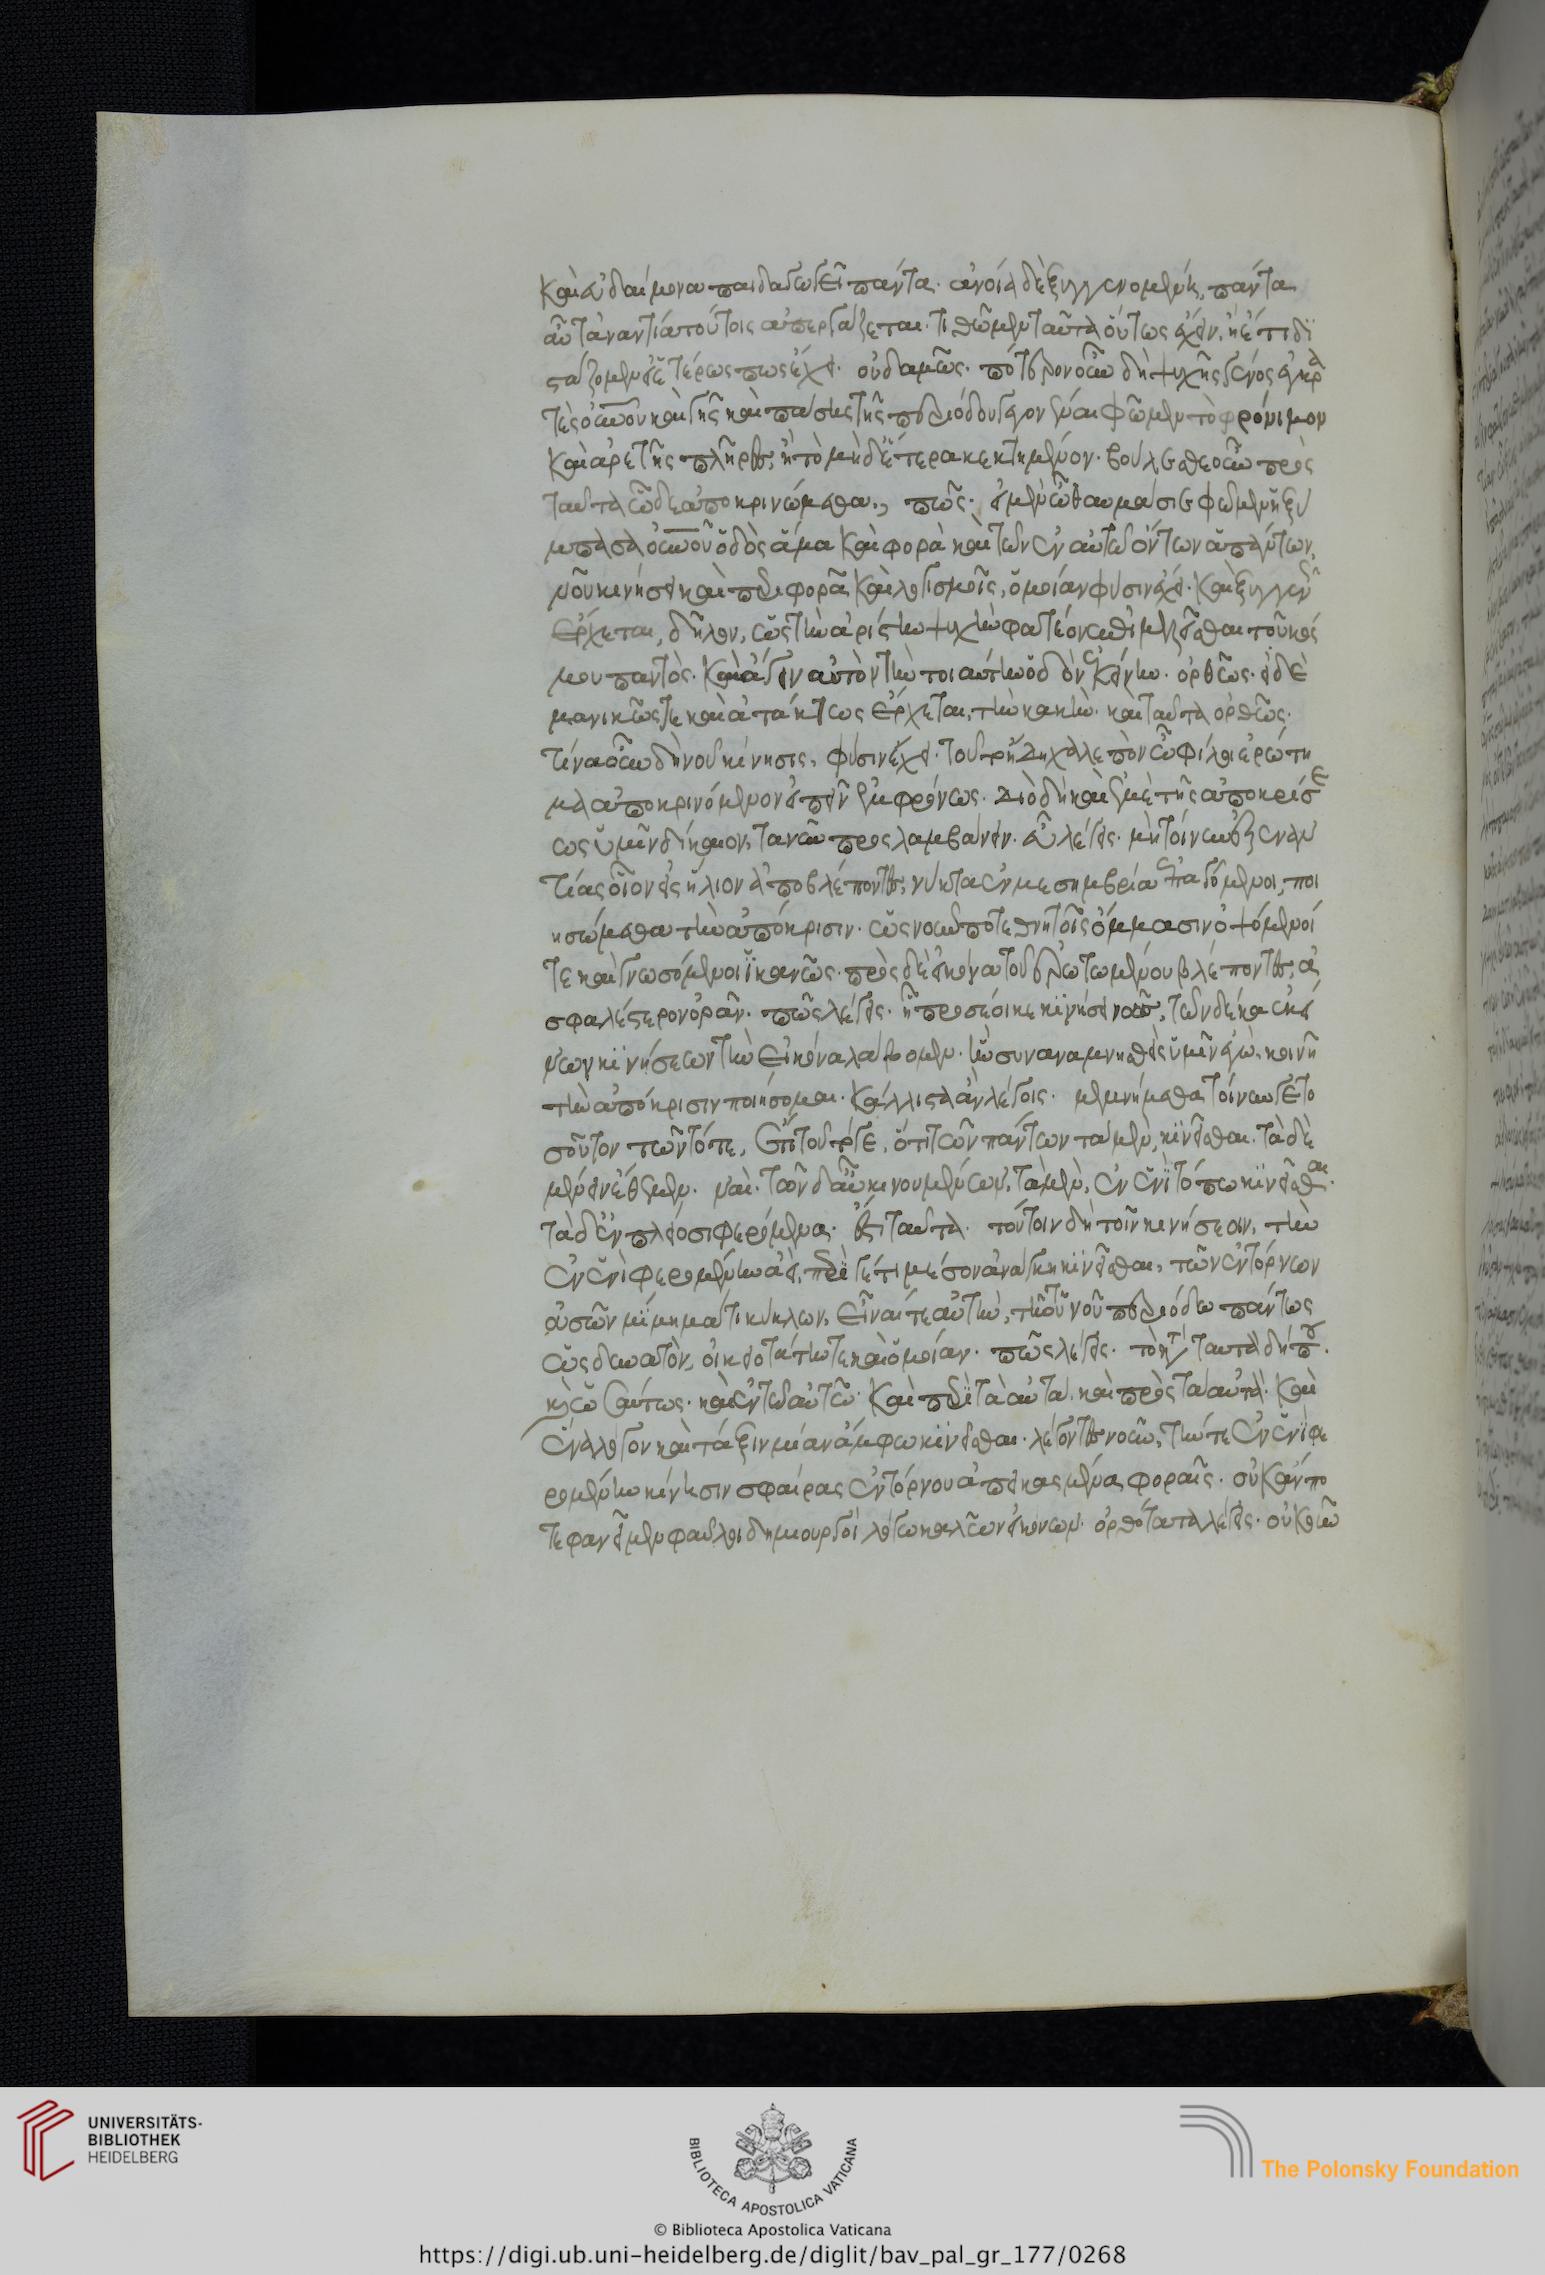 καὶ εὐδαίμονα παιδαγωγεῖ πάντα· ἀνοία δὲ ξυγγενομένη, πάντα
αὖ τἀναντία τούτοις ἀπεργάζεται· τιθῶμεν ταῦτα οὕτως ἔχειν, ἢ ἔτι δι
στάζομεν εἰ ἑτέρως πως ἔχει· οὐδαμῶς· πότερον οὖν δὴ ψυχῆς γένος ἐγκρα
τὲς οὐνοῦ καὶ γῆς καὶ πάσης τῆς περιόδου γεγονέναι φῶμεν τὸ φρόνιμον
καὶ ἀρετῆς πλῆρες, ἢ τὸ μηδέτερα κεκτημένον· βούλεσθε οὖν πρὸς
ταῦτα ὧδε ἀποκρινώμεθα., πῶς· εἰ μὲν ὦ θαυμάσιε φῶμεν ἡ ξύ
μπασα οὐνοῦ ὁδὸς ἅμα καὶ φορὰ καὶ τῶν ἐν αὐτῷ ὄντων ἁπάντων,
νοῦ κινήσει καὶ περιφορᾶ καὶ λογισμοῖς, ὁμοίαν φύσιν ἔχει· καὶ ξυγγενῶς
ἔρχεται, δῆλον, ὡς τὴν ἀρίστην ψυχὴν φατέον ἐπιμελεῖσθαι τοῦ κόσ
μου παντὸς· καὶ ἄγειν αὐτὸν τὴν τοιαύτην ὁδὸν ἐκείνην· ὀρθῶς· εἰ δὲ
μανικῶς τε καὶ ἀτάκτως ἔρχεται, τὴν κακήν· καὶ ταῦτα ὀρθῶς·
τίνα οὖν δὴ νοῦ κίνησις, φύσιν ἔχει· τοῦτο ἤδη χαλεπὸν ὦ φίλοι ἐρώτη
μα ἀποκρινόμενον εἰπεῖν ἐμφρόνως· διὸ δὴ καὶ ἐμὲ τῆς ἀποκρίσε
ως ὑμῖν δίκαιον, τανῦν προσλαμβάνειν· εὖ λέγεις· μὴ τοίνυν ἐξεναν
τίας οἷον εἰς ἥλιον ἀποβλέποντες, νύκτα ἐν μεσημβρία ἐπαγόμενοι, ποι
ησώμεθα τὴν ἀπόκρισιν· ὡς νοῦν ποτε θνητοῖς ὄμμασιν ὀψόμενοί
τε καὶ γνωσόμενοι ἱκανῶς· πρὸς δὲ εἰκόνα τοῦ ἐρωτωμένου βλέποντες, ἀ
σφαλέστερον ὁρᾶν· πῶς λέγεις· ἧ προσέοικε κινήσει νοῦς, τῶν δέκα ἐκεί
νων κινήσεων τὴν εἰκόνα λάβομεν· ἣν συναναμνησθεὶς ὑμῖν ἐγὼ, κοινῆ
τὴν ἀπόκρισιν ποιήσομαι· κάλλιστα ἂν λέγοις· μεμνήμεθα τοίνυν γε το
σοῦτον τῶν τότε, ἐπὶ τούτω γε, ὅτι τῶν πάντων τὰ μὲν, κινεῖσθαι· τὰ δὲ
μένειν ἔθεμεν· ναί· τῶν δ' αὖ κινουμένων, τὰ μὲν, ἐν ἑνὶ τόπω κινεῖσθαι·
τὰ δ' ἐν πλείοσι φερόμενα· ἔστι ταῦτα· τούτοιν δὴ τοῖν κινήσεοιν, τὴν
ἐν ἑνὶ φερομένην ἀεὶ, περὶ γέ τι μέσον ἀνάγκη κινεῖσθαι, τῶν ἐντόρνων
οὐσῶν μίμημά τι κύκλων, εἶναί τε αὐτὴν, τῆ τοῦ νοῦ περιόδω πάντως
ὡς δυνατὸν, οἰκειοτάτην τε καὶ ὁμοίαν· πῶς λέγεις· τὸ κατὰ ταυτὰ δήπου·
καὶ ὡσαύτως· καὶ ἐν τῶ αὐτῶ· καὶ περὶ τὰ αὐτὰ· καὶ πρὸς τὰ αὐτὰ· καὶ
ἕνα λόγον καὶ τάξιν μίαν ἄμφω κινεῖσθαι· λέγοντες νοῦν, τήν τε ἐν ἑνὶ φε
ρομένην κίνησιν σφαίρας ἐντόρνου ἀπεικασμένα φοραῖς· οὐκ ἄν πο
τε φανεῖμεν φαῦλοι δημιουργοὶ λόγω καλῶν εἰκόνων· ὀρθότατα λέγεις· οὐκοῦν
UNIVERSITÄTS-
BIBLIOTHEK
HEIDELBERG
BIBLIOTECA APOSTOLICA VATICANA
The Polonsky Foundation
© Biblioteca Apostolica Vaticana
https://digi.ub.uni-heidelberg.de/diglit/bav_pal_gr_177/0268